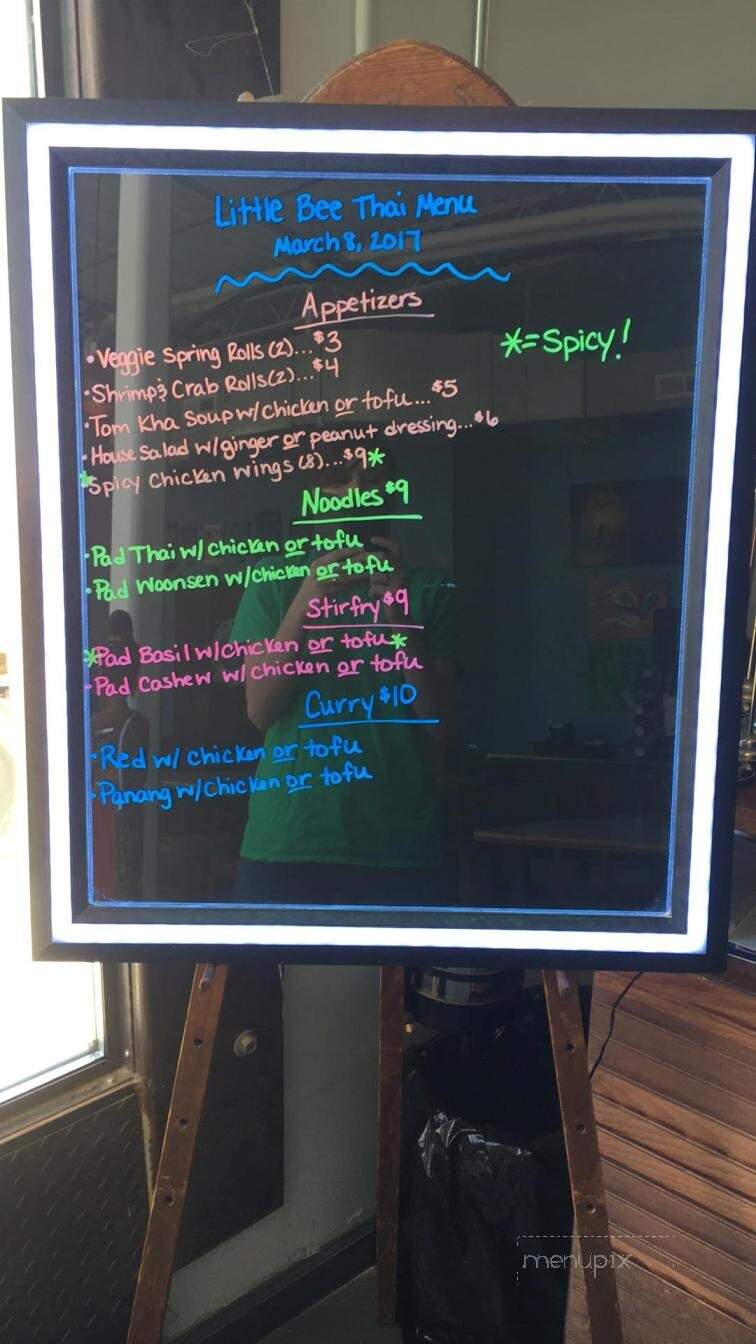 Little Bee Thai Menu
March 8, 2017
Appetizers
*=Spicy!
•Veggie Spring Rolls (2)...$3
•Shrimp & Crab Rolls (2)...$4
•Tom Kha Soup w/chicken or tofu...$5
•House Salad w/ginger or peanut dressing...$6
*Spicy Chicken Wings (8)...$9*
Noodles $9
•Pad Thai w/chicken or tofu
•Pad Woonsen w/chicken or tofu
Stirfry $9
*Pad Basil w/chicken or tofu*
•Pad Cashew w/chicken or tofu
Curry $10
•Red w/ chicken or tofu
•Panang w/chicken or tofu
menupix